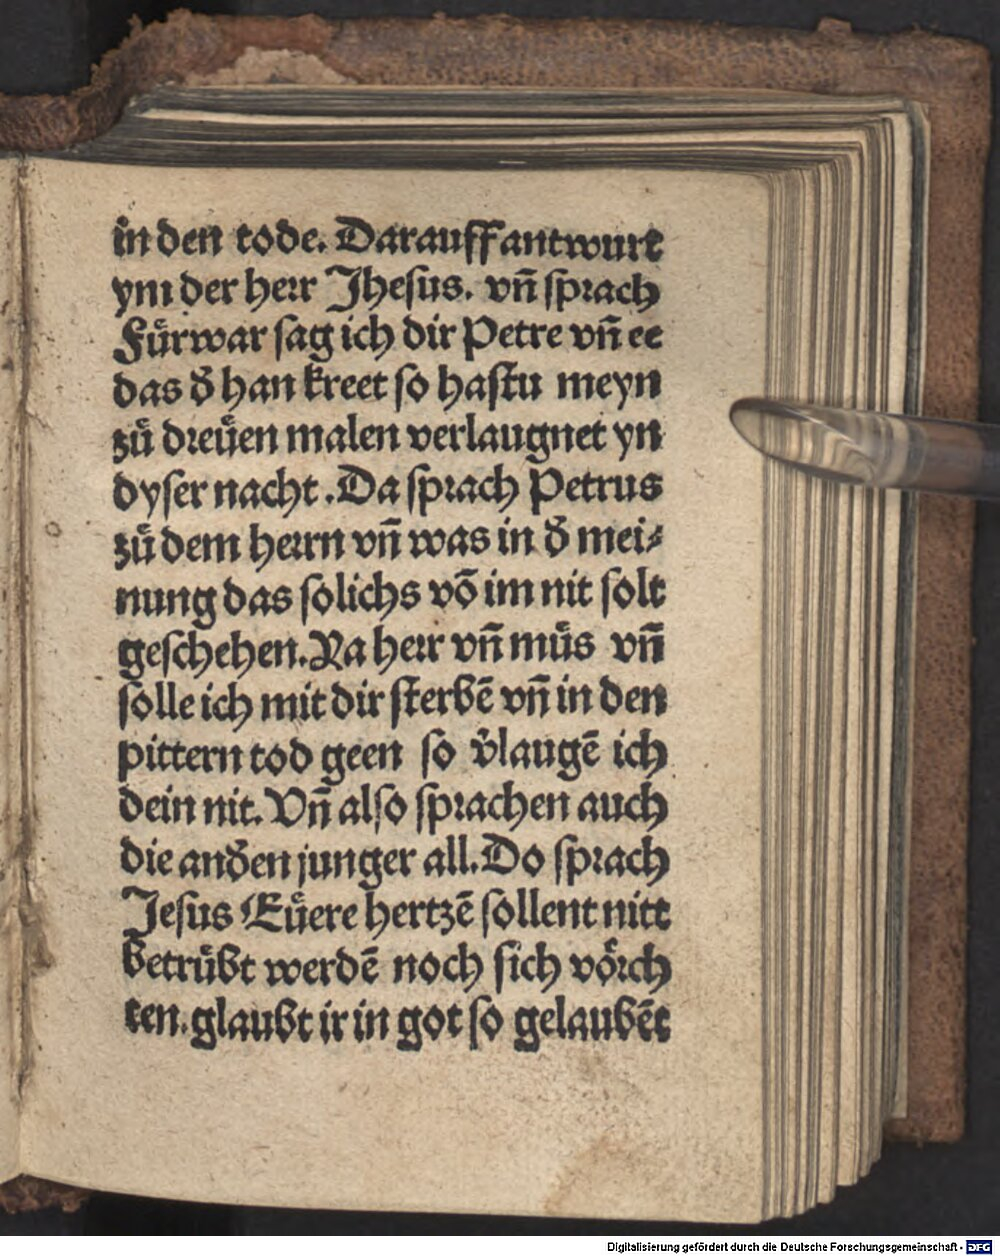 in den tode. Darauff antwurt
ym der herr Jhesus. vñ sprach
Fürwar sag ich dir Petre vñ ee
das d̕ han kreet so hastu meyn
zuͤ dreüen malen verlaugnet yn
dyser nacht. Da sprach Petrus
zuͤ dem herrn vñ was in d̕ mei⸗
nung das solichs vō im nit solt
geschehen. Na herr vñ muͤs vñ
solle ich mit dir sterbē vñ in den
pittern tod geen so v̕laugē ich
dein nit. Vñ also sprachen auch
die and̕en junger all. Do sprach
Jesus Eüere hertzē sollent nitt
betrübt werdē noch sich vörch
ten. glaubt ir in got so gelaubēt
Digitalisierung gefördert durch die Deutsche Forschungsgemeinschaft - DFG